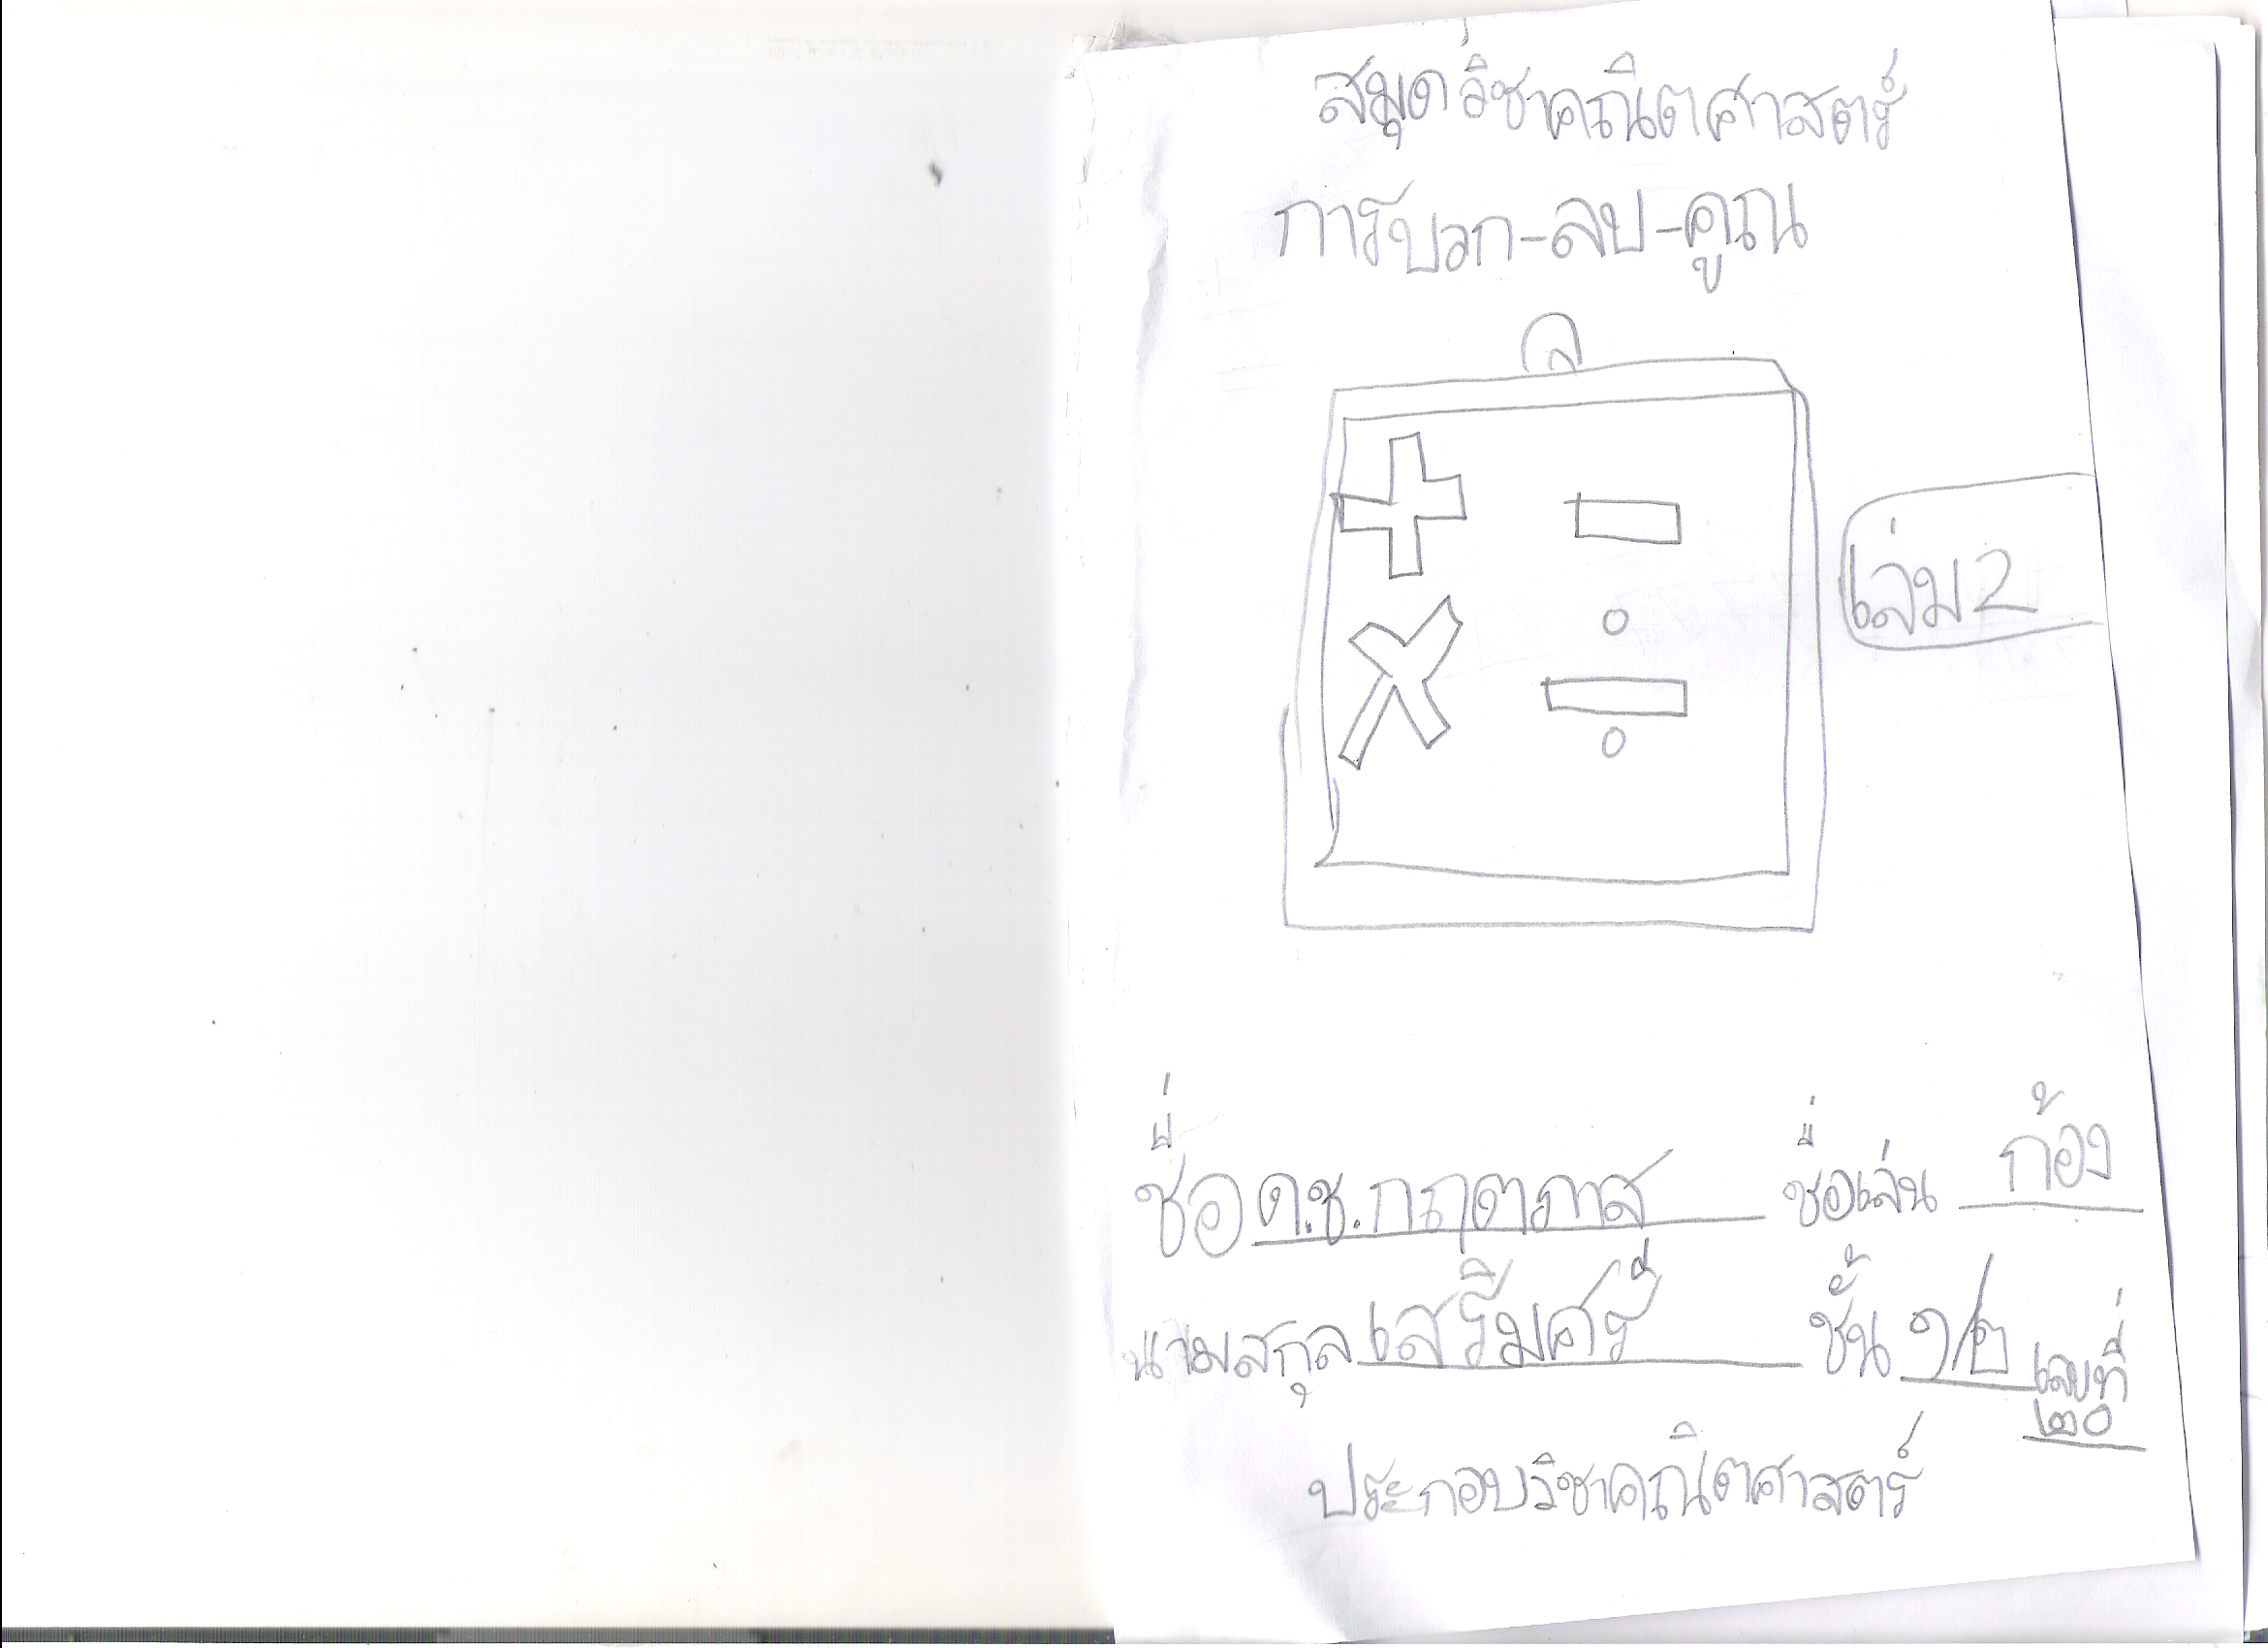 สมุดวิชาคณิตศาสตร์
การบวก-ลบ-คูณ
เล่ม 2
ชื่อ ด.ช. กฤตภาส ชื่อเล่น ก้อง
นามสกุล เสริมศรี ชั้น ๑/๒ เลขที่ ๒๐
ประกอบวิชาคณิตศาสตร์